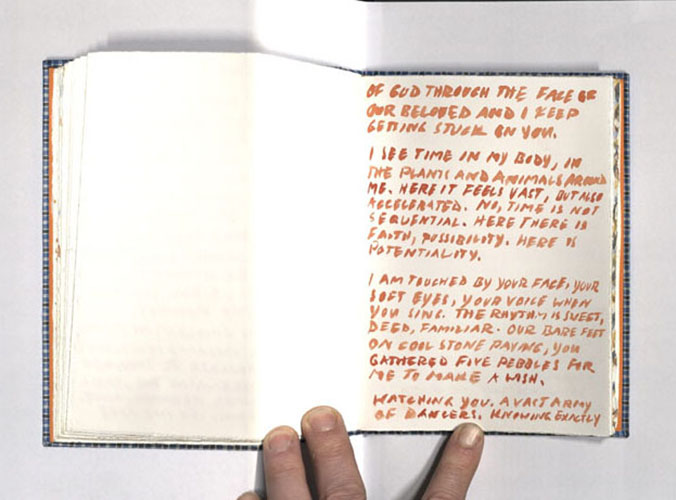 OF GOD THROUGH THE FACE OF
OUR BELOVED AND I KEEP
GETTING STUCK ON YOU.
I SEE TIME IN MY BODY, IN
THE PLANTS AND ANIMALS AROUND
ME. HERE IT FEELS VAST, BUT ALSO
ACCELERATED. NO, TIME IS NOT
SEQUENTIAL. HERE THERE IS
FAITH, POSSIBILITY. HERE IS
POTENTIALITY.
I AM TOUCHED BY YOUR FACE, YOUR
SOFT EYES, YOUR VOICE WHEN
YOU SING. THE RHYTHM IS SWEET,
DEEP, FAMILIAR. OUR BARE FEET
ON COOL STONE PAVING, YOU
GATHERED FIVE PEBBLES FOR
ME TO MAKE A WISH.
WATCHING YOU. A VAST ARMY
OF DANCERS. KNOWING EXACTLY